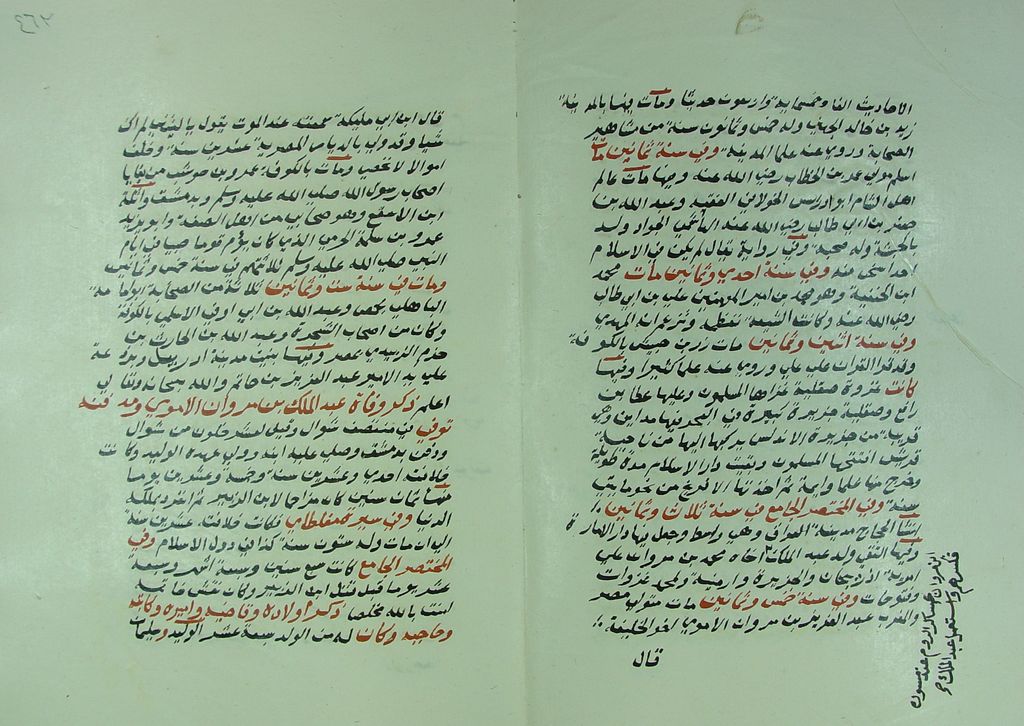 الاحاديث الفا وخمسماية واربعون حديثا ومات فيها بالمدينة
زيد بن خالد الجهني وله خمس وثمانون سنة من مشاهير
الصحابة وروي عنه علما المدينة وفي سنة ثمانين مات
اسلم مولي عمر بن الخطاب رضي الله عنه وفيها مات عالم
اهل الشام ابو ادريس الخولاني الفقيه وعبد الله بن
جعفر بن ابي طالب رضي الله عنه الجواد ولد
بالحبشة وله صحبة وفي رواية يقال لم يكن في الاسلام
احد اسخي منه وفي سنة احدي وثمانين مات محمد
ابن الحنفية وهو محمد بن امير المومنين علي بن ابي طالب
رضي الله عنه وكانت الشيعة تعظمه وتزعم انه المهدي
وفي سنة اثنين وثمانين مات زر بن حبيش بالكوفة
وقد قرا القران علي علي وروي عنه علما كثيرا وفيها
كانت غزوة صقلية غزاها المسلمون وعليها عطا بن
رافع وصقلية جزيرة كبيرة في البحر فيها مداين وهي
قريبة من جزيرة الاندلس يدركها اليها من ناحية
افتتحها المسلمون وبقيت دار الاسلام مدة طويلة
وخرج منها علما وايمة ثم اخذتها الافرنج من نحو مايتي
سنة وفي المختصر الجامع في سنة ثلاث وثمانين
انشا الحجاج مدينة العراق وهي واسط وجعل بها دار الامارة
وفيها التقي ولد عبد الملك اخاه محمد بن مروان علي
امرية اذربيجان والجزيرة وارمينية ولمحمد غزوات
وفتوحات وفي سنة خمس وثمانين مات متولي مصر
والمغرب عبد العزيز بن مروان الاموي اخو الخليفة
قال
عساكر الروم عند
عبد الملك
٤٦٢
قال ابن ابي مليكة سمعته عند الموت يقول يا ليتني لم اك
شيا وقد ولي بالديار المصرية عشرين سنة وخلف
اموالا لا تحصي ومات بالكوفة عمرو بن حريث من بقايا
اصحاب رسول الله صلي الله عليه وسلم وبدمشق واثلة
ابن الاسقع وهو صحابي من اهل الصفة وابو يزيد
عمرو بن سلمة الجرمي الذي كان يؤم قوما صبيا في ايام
النبي صلي الله عليه وسلم ثلاثتهم في سنة خمس وثمانين
ومات في سنة ست وثمانين ثلاثة من الصحابة ابو امامة
الباهلي بحمص وعبد الله بن ابي اوفي الاسلمي بالكوفة
وكان من اصحاب الشجرة وعبد الله بن الحارث بن
جزء الزبيدي بمصر وفيها بنيت مدينة اردبيل وبرذعة
علي يد الامير عبد العزيز بن حاتم والله سبحانه وتعالي
اعلم ذكر وفاة عبد الملك بن مروان الاموي ومدفنه
توفي في منتصف شوال وقيل لعشر خلون من شوال
ودفن بدمشق وصلي عليه ابنه وولي عهده الوليد وكانت
خلافته احدي وعشرين سنة وخمسة وعشرين يوما
منها ثمان سنين كان مزاحما لابن الزبير ثم انفرد بمملكة
الدنيا وفي سيرة مغلطاي فكانت خلافته عشرين سنة
الي ان مات وله ستون سنة كذا في دول الاسلام وفي
المختصر الجامع كانت سبع سنين وسبعة اشهر وسبعة
عشر يوما قبل قتل ابن الزبير وكان نقش خاتمه
امنت بالله مخلصا ذكر اولاده وقاضيه واميره وكاتبه
وحاجبه وكان له من الولد سبعة عشر الوليد وسليمان